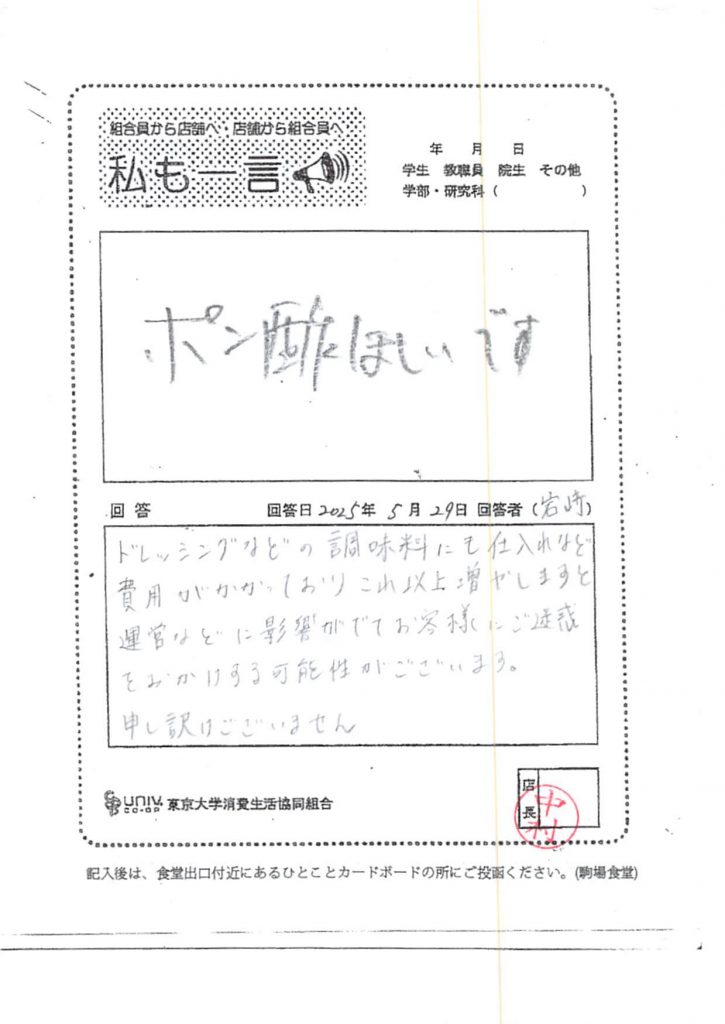 組合員から店舗へ・店舗から組合員へ
私も一言
年 月 日
学生 教職員 院生 その他
学部・研究科 ( )
ポン酢ほしいです
回答 回答日 2025年 5月 29日 回答者 (岩崎)
ドレッシングなどの調味料にも仕入れなど
費用がかかっておりこれ以上増やしますと
運営などに影響がでてお客様にご迷惑
をおかけする可能性がございます。
申し訳ございません
UNIV. CO-OP 東京大学消費生活協同組合
店長
中村
記入後は、食堂出口付近にあるひとことカードボードの所にご投函ください。(駒場食堂)